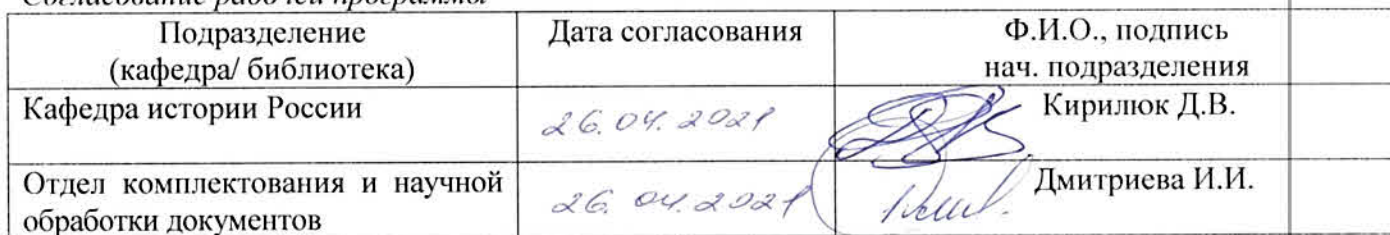 Согласование рабочей программы
Подразделение
(кафедра/ библиотека)
Дата согласования
Ф.И.О., подпись
нач. подразделения
Кафедра истории России
26.04.2021
Кирилюк Д.В.
Отдел комплектования и научной
обработки документов
26.04.2021
Дмитриева И.И.